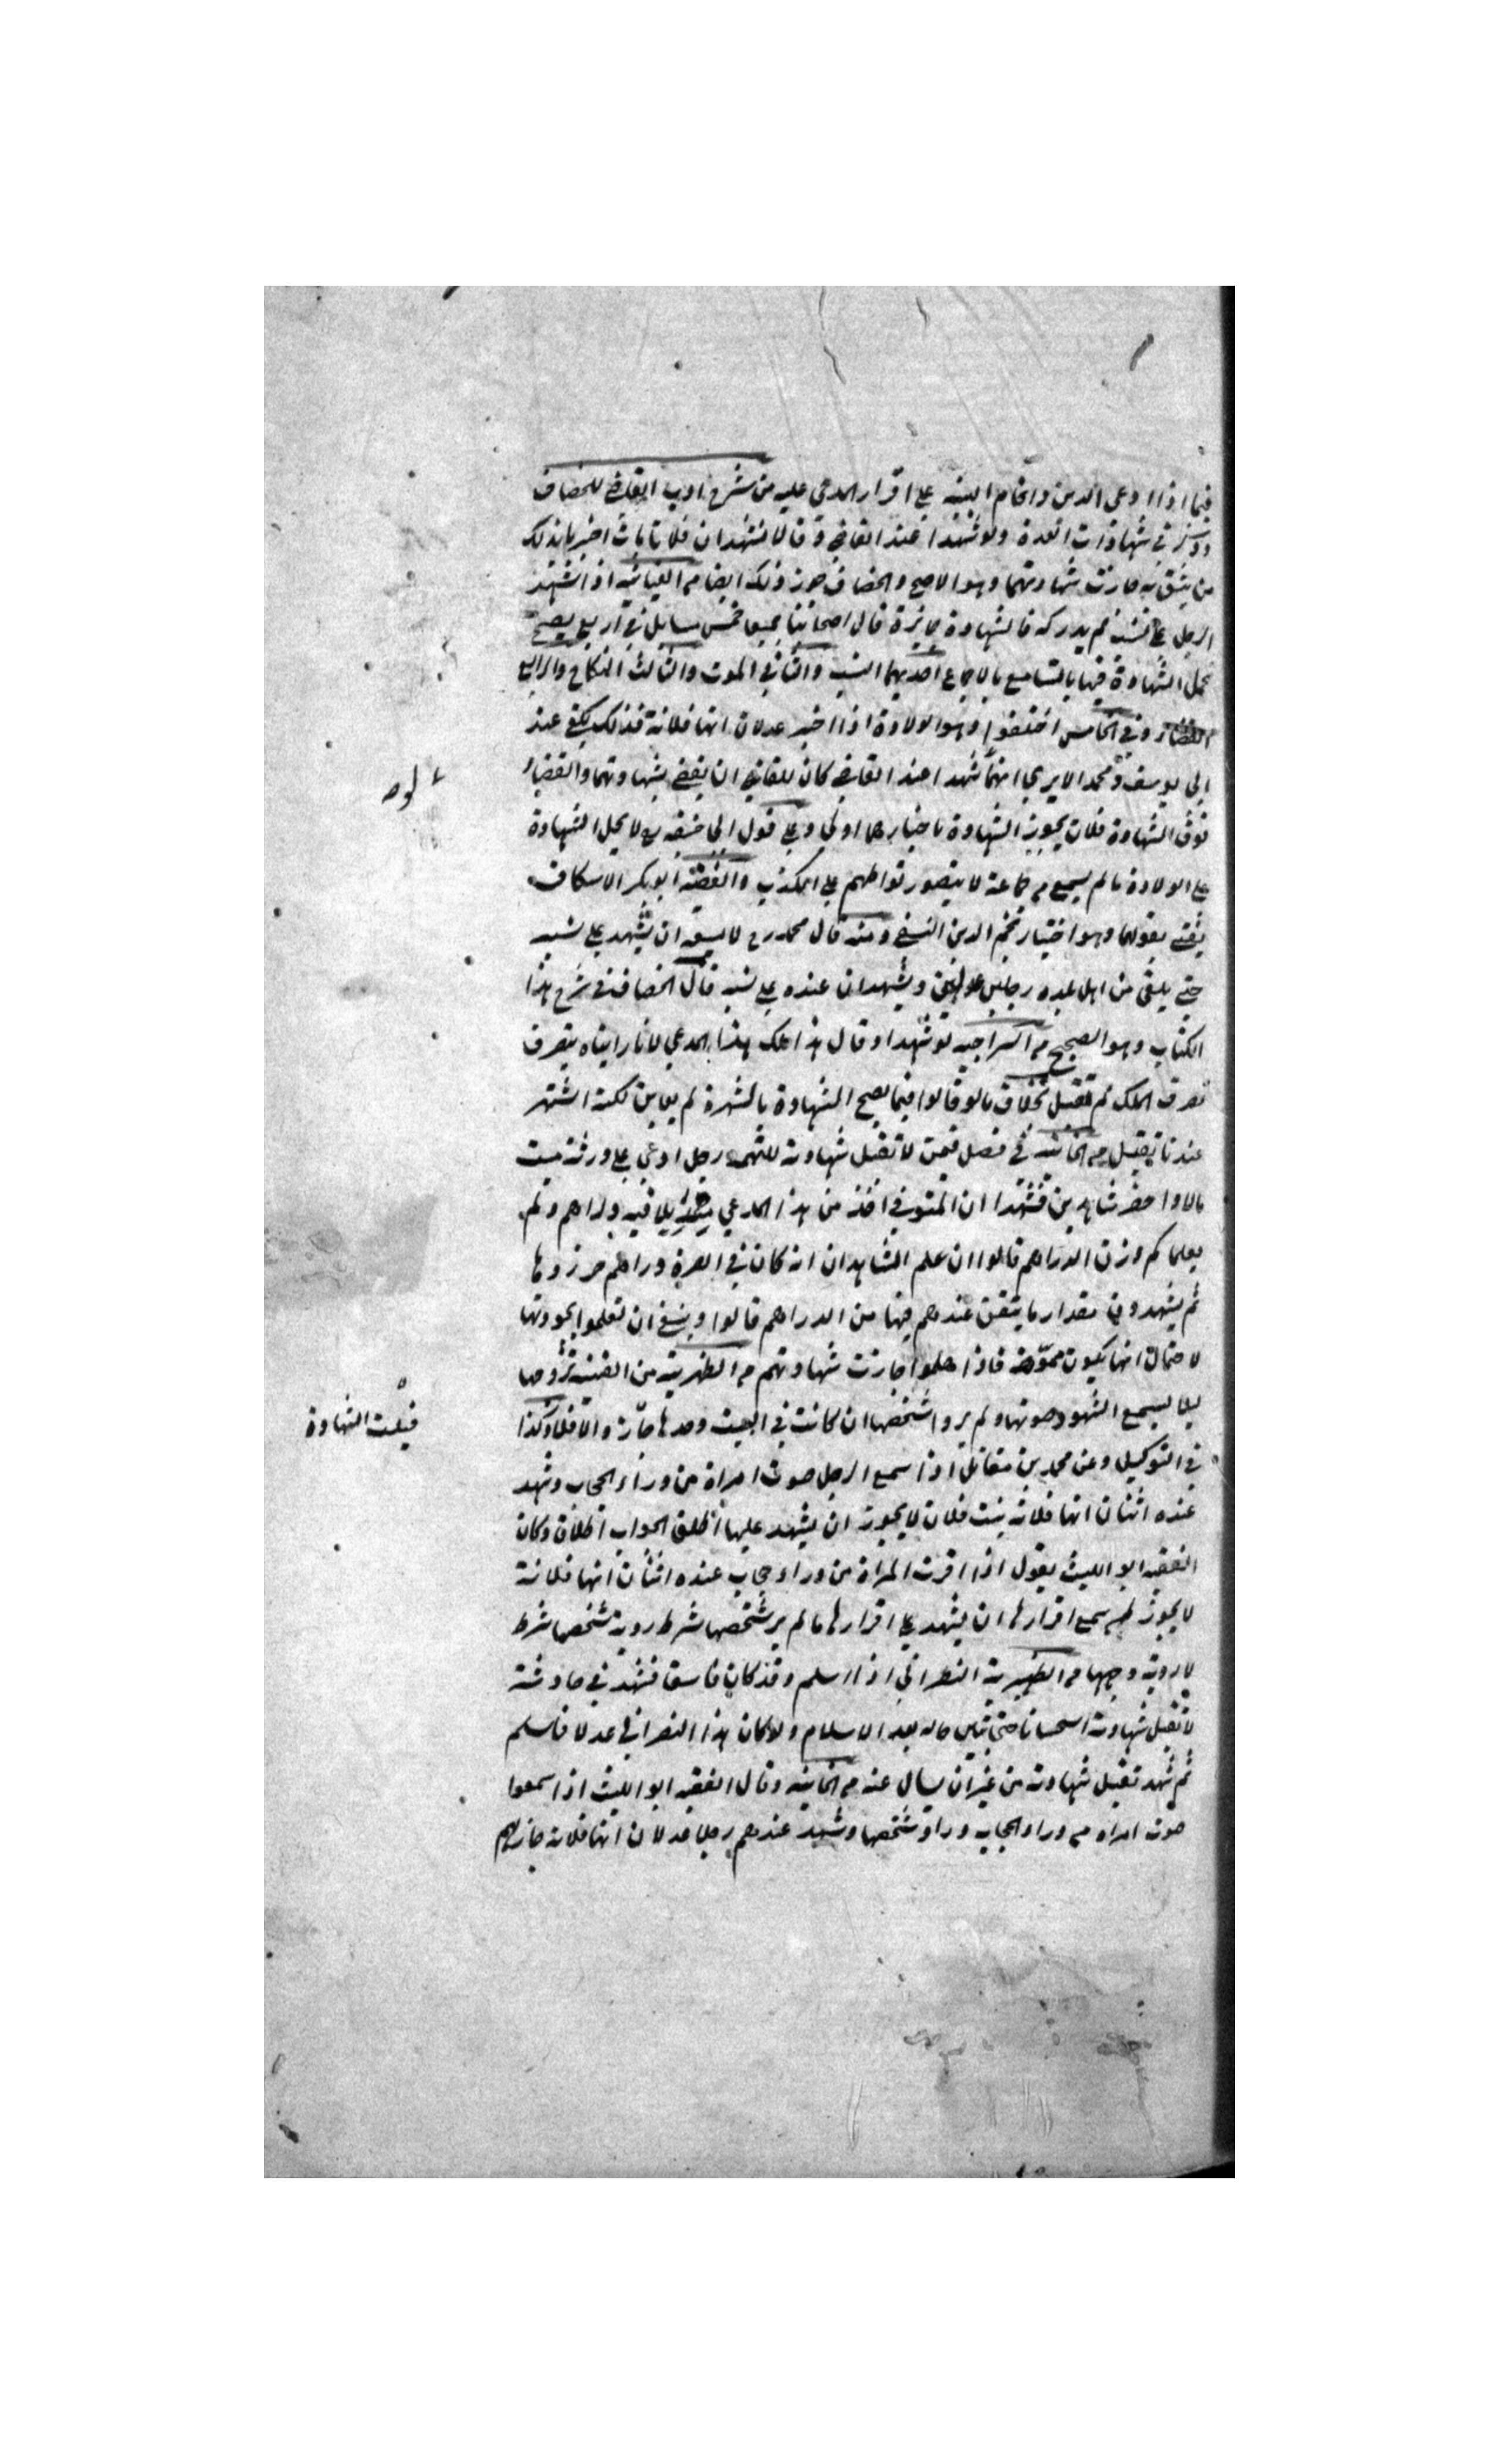 فيما اذا ادعى الدين واقام البينة على اقرار المدعى عليه من شرح ادب القاضي للخصاف
وذكر في شهادات العدة ولو شهدا عند القاضي وقالا نشهد ان فلانا مات اخبرنا بذلك
من يثق به جازت شهادتهما وهو الاصح والخصاف جوز ذلك ايضا من الغياثية اذا شهد
الرجل على نسب لم يدركه فالشهادة جايزة قال اصحابنا جميعا خمس مسايل في اربع يصح
تحمل الشهادة فيها بالتسامع بالاجماع احديهما النسب والثاني الموت والثالث النكاح والرابع
القضاء وفي الخامس اختلفوا وهو الولادة اذا اخبر عدلان انها فلانة فذلك يكفي عند
ابي يوسف ومحمد الا يرى انهما شهدا عند القاضي كان للقاضي ان يقضي بشهادتهما والقضاء
فوق الشهادة فلان يجوز الشهادة باخبارهما اولى وعلى قول ابي حنيفة رح لا يحل الشهادة
على الولادة ما لم يسمع من جماعة لا يتصور تواطهم على الكذب والفقيه ابو بكر الاسكاف
يفتي بقولهما وهو اختيار نجم الدين النسفي ومنه قال محمد رح لا يسعه ان يشهد على نسبه
حتى يلقى من اهل بلده رجلين عدلين ويشهدان عنده على نسبه قال الخصاف في شرح هذا
الكتاب وهو الصحيح من السراجية لو شهدا وقال هذا ملك هذا المدعي لانا رايناه يتصرف
تصرف الملاك لم تقبل بخلاف ما لو قالوا فيما يصح الشهادة بالشهرة لم يعاين لكنه اشتهر
عندنا يقبل من الخانية في فصل فيمن لا تقبل شهادته للتهمة رجل ادعى على ورثة ميت
مالا واحضر شاهدين فشهدا ان المتوفى اخذ من هذا المدعي منديلا فيه دراهم ولم
يعلما كم وزن الدراهم قالوا ان علم الشاهدان انه كان في الصرة دراهم حرزوها
ثم يشهدون مقدار ما يتقن عندهم فيها من الدراهم قالوا وينبغي ان تعلموا بجودتها
لاحتمال انها يكون مموهة فاذا علموا جازت شهادتهم من الظهيرية من القنية تزوجها
ليلا يسمع الشهود صوتها ولم يروا شخصها ان كانت في البيت وحدها جاز والا فلا وكذا
في التوكيل وعن محمد بن مقاتل اذا سمع الرجل صوت امراة من وراء الحجاب وشهد
عنده اثنان انها فلانة بنت فلان لا يجوز ان يشهد عليها اطلق الجواب اطلاقا وكان
الفقيه ابو الليث يقول اذا اقرت المراة من وراء حجاب عنده اثنان انها فلانة
لا يجوز لمن سمع اقرارها ان يشهد على اقرارها ما لم ير شخصها شرط روية شخصها شرط
لا روية وجهها من الظهيرية النصراني اذا اسلم وقد كان فاسقا فشهد في حادثة
لا تقبل شهادته استحسانا حتى يتبين حاله بعد الاسلام ولو كان هذا النصراني عدلا فاسلم
ثم شهد تقبل شهادته من غير ان يسال عنه من الخانية وقال الفقيه ابو الليث اذا سمعوا
صوت امراة من وراء الحجاب وراوا شخصها وشهد عندهم رجلا عدلان انها فلانة جاز لهم
قبلت الشهادة